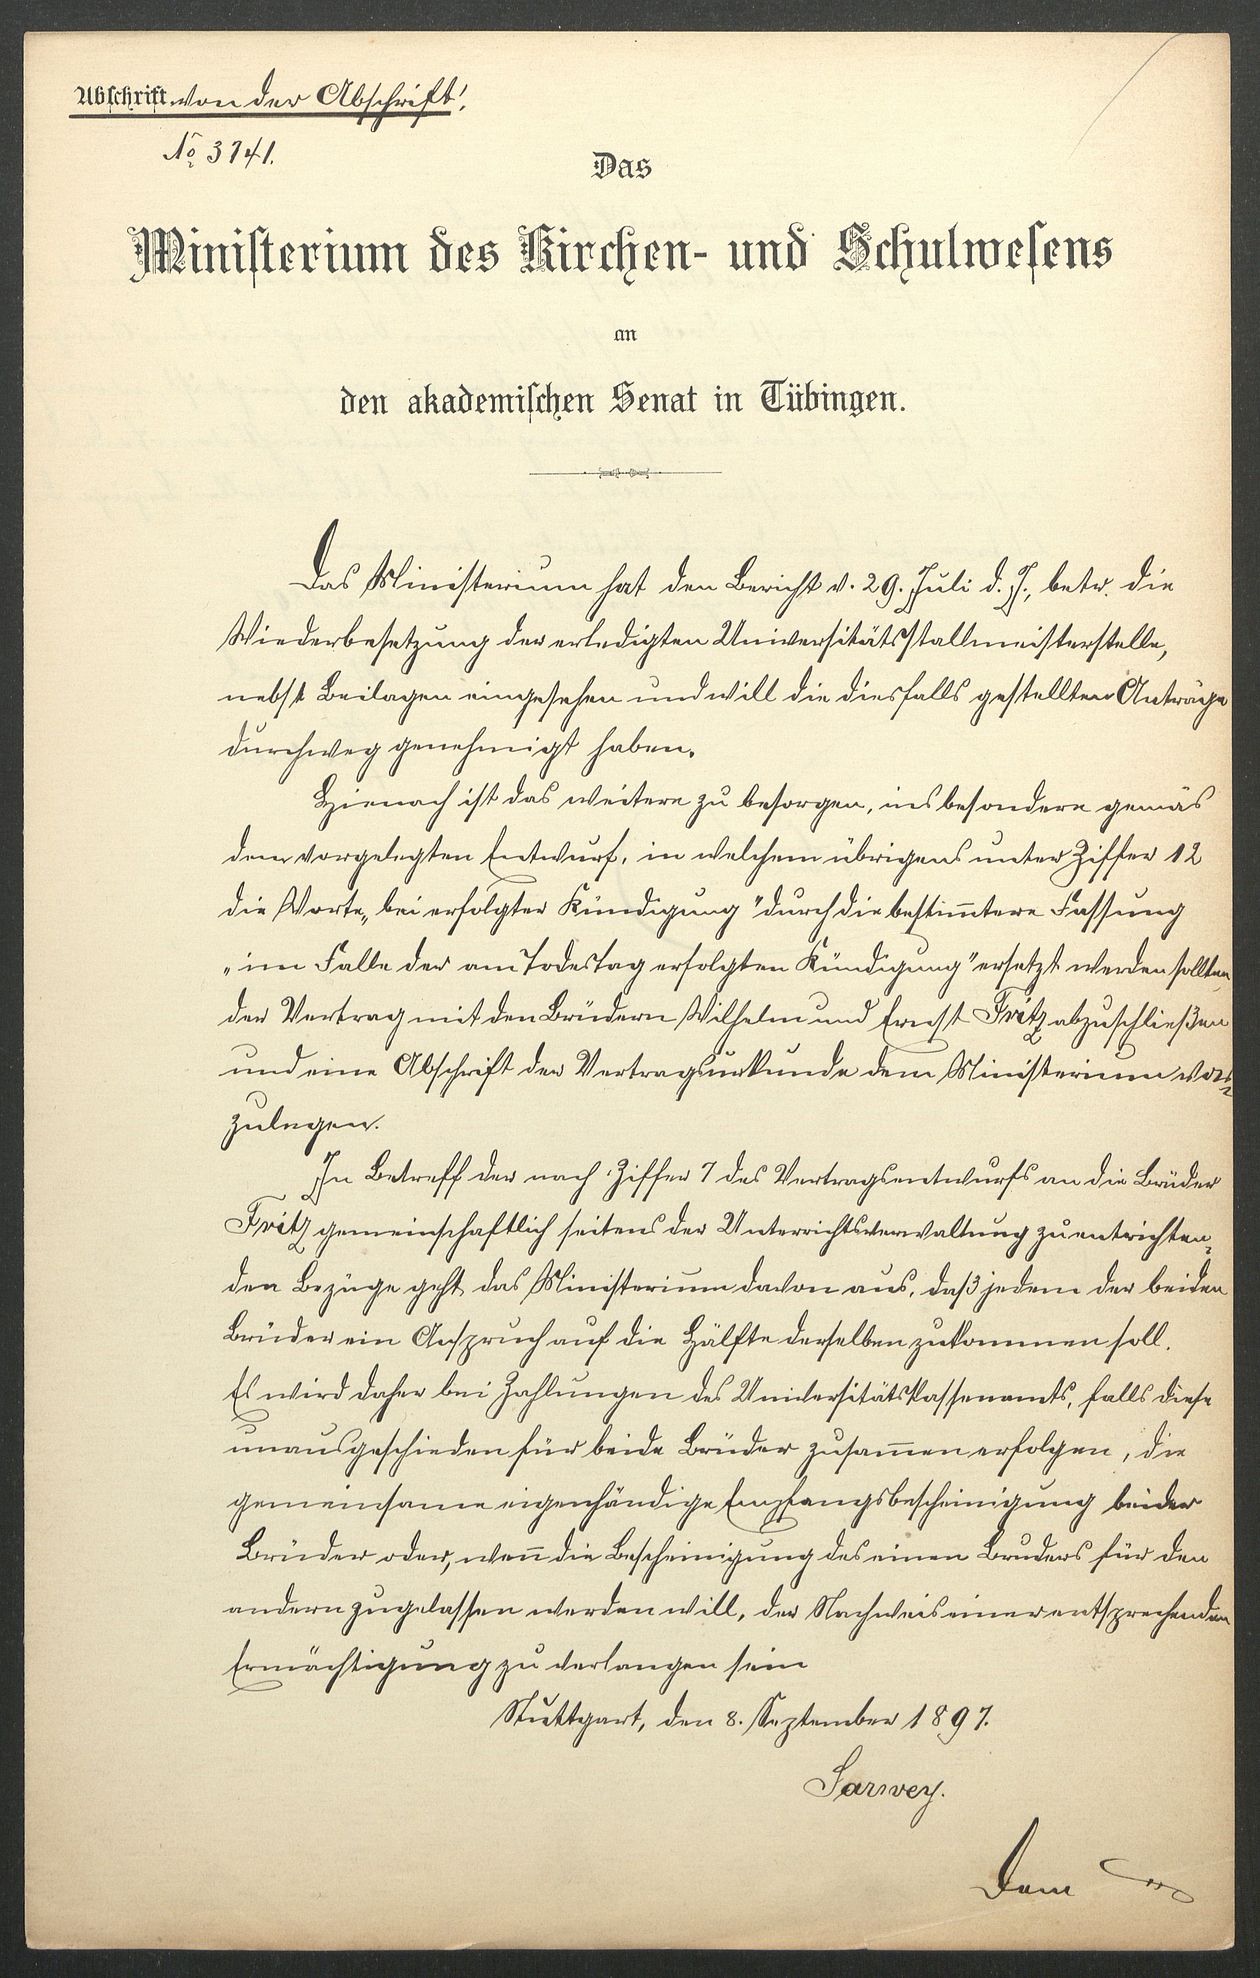 Abschrift von der Abschrift!
No 3741.
Das
Ministerium des Kirchen- und Schulwesens
an
den akademischen Senat in Tübingen.
Das Ministerium hat den Bericht v. 29. Juli d. J., betr. die
Wiederbesetzung der erledigten Universitätsstallmeisterstelle,
nebst Beilagen eingesehen und will die diesfalls gestellten Anträge
durchweg genehmigt haben.
Hienach ist das weitere zu besorgen, insbesondere gemäs
dem vorgelegten Entwurf, in welchem übrigens unter Ziffer 12
die Worte „bei erfolgter Kündigung" durch die bestim̄tere Fassung
„im Falle der am Todestag erfolgten Kündigung" ersetzt werden sollten,
der Vertrag mit den Brüdern Wilhelm und Ernst Fritz abzuschließen
und eine Abschrift der Vertragsurkunde dem Ministerium vor-
zulegen.
In Betreff der nach Ziffer 7 des Vertragsentwurfs an die Brüder
Fritz gemeinschaftlich seitens der Unterrichtsverwaltung zu entrichten-
den Bezüge geht das Ministerium davon aus, daß jedem der beiden
Brüder ein Anspruch auf die Hälfte derselben zukommen soll.
Es wird daher bei Zahlungen des Universitätskassenamts, falls diese
unausgeschieden für beide Brüder zusam̄en erfolgen, die
gemeinsame eigenhändige Empfangsbescheinigung beider
Brüder oder, wen̄ die Bescheinigung des einen Bruders für den
andern zugelassen werden will, der Nachweis einer entsprechenden
Ermächtigung zu verlangen sein
Stuttgart, den 8. September 1897.
Sarwey.
Dem